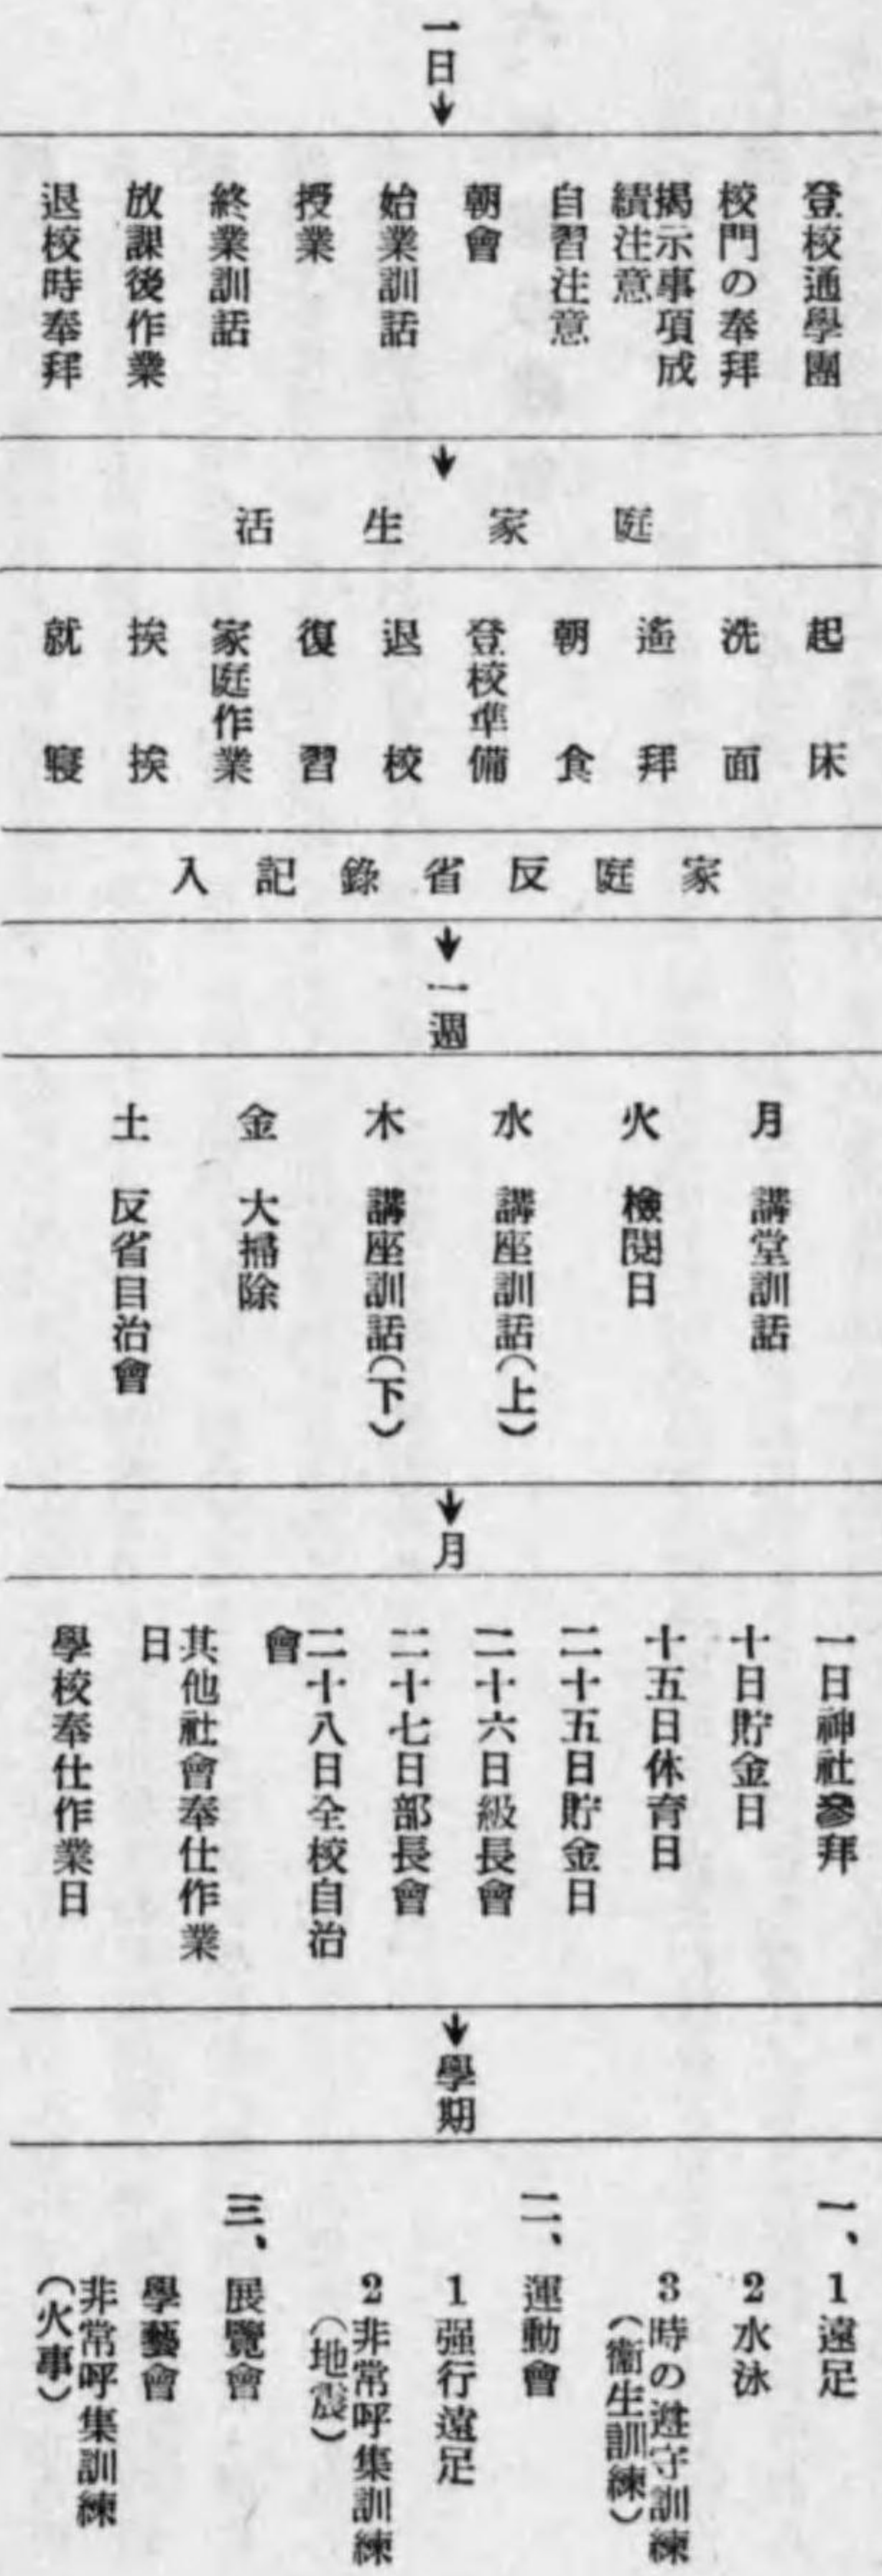 一日↓
登校通學團
校門の奉拜
揭示事項成
績注意
自習注意
朝會
始業訓話
授業
終業訓話
放課後作業
退校時奉拜
↓
庭家生活
起床
洗面
遙拜
朝食
登校準備
退校
復習
家庭作業
挨挨
就寢
家庭反省錄記入
↓一週
月 講堂訓話
火 檢閱日
水 講座訓話(上)
木 講座訓話(下)
金 大掃除
土 反省自治會
↓月
一日神社參拜
十日貯金日
十五日休育日
二十五日貯金日
二十六日級長會
二十七日部長會
二十八日全校自治
會
其他社會奉仕作業
日
學校奉仕作業日
↓學期
一、1遠足
2水泳
3時の遵守訓練
(衞生訓練)
二、運動會
1强行遠足
2非常呼集訓練
(地震)
三、展覽會
學藝會
非常呼集訓練
(火事)